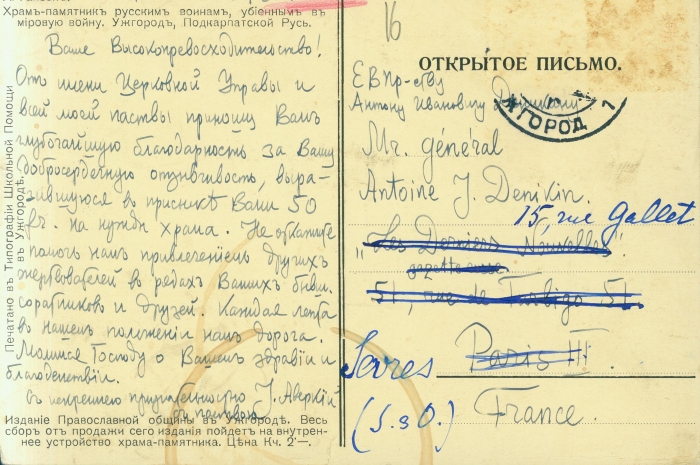 Храмъ-памятникъ русскимъ воинамъ, убіеннымъ въ
міровую войну. Ужгородъ, Подкарпатской Русь.
Ваше Высокопревосходительство!
Отъ имени Церковной Управы и
всей моей паствы приношу Вамъ
глубочайшую благодарность за Вашу
добросердечную отзывчивость, выра-
зившуюся въ присылкѣ Вами 50
фр. на нужды храма. Не откажите
помочь намъ привлеченіемъ другихъ
жертвователей въ рядахъ Вашихъ бывш.
соратниковъ и друзей. Каждая лепта
въ нашемъ положеніи намъ дорога.
Молимся Господу о Вашемъ здравіи и
благоденствіи.
Съ искреннею признательностью I. Аверкій
съ паствою
Изданіе Православной общины въ Ужгородѣ. Весь
сборъ отъ продажи сего изданія пойдетъ на внутрен-
нее устройство храма-памятника. Цѣна Кч. 2'—.
Печатано въ Типографіи Школьной Помощи
въ Ужгородѣ.
16
ОТКРЫТОЕ ПИСЬМО.
ЕВПр-ству
Антону Ивановичу Деникину
УЖГОРОД 1
Mr. général
Antoine J. Denikin
15, rue Gallet
"Les Dernières Nouvelles"
51, rue de Turbigo 51
Sèvres Paris III
(S. s O.) France.